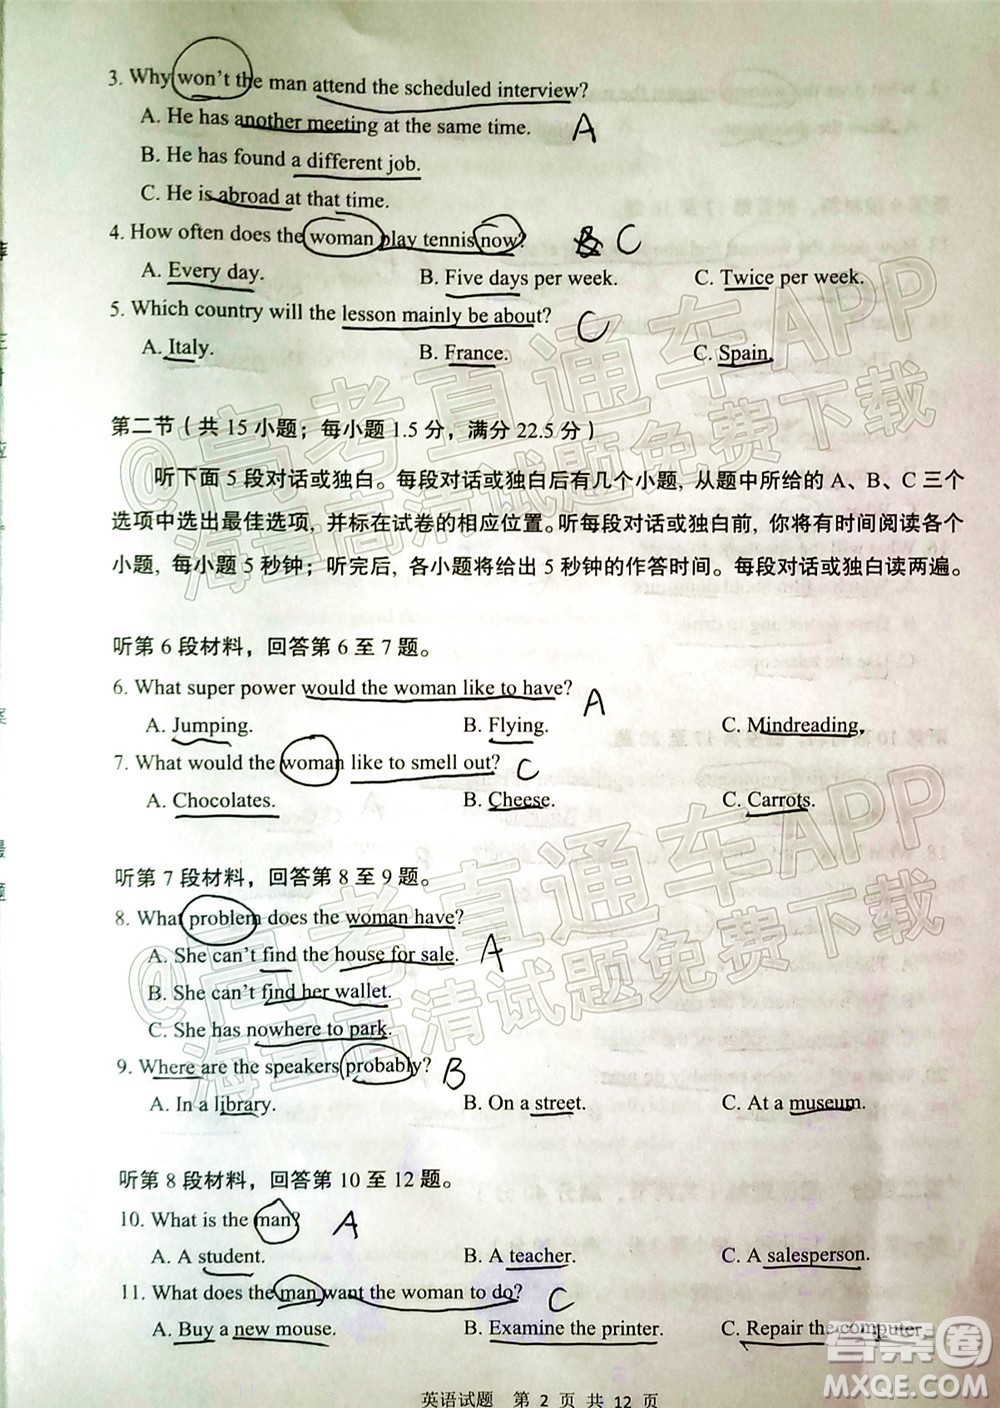 3. Why won't the man attend the scheduled interview?
A. He has another meeting at the same time. A
B. He has found a different job.
C. He is abroad at that time.
4. How often does the woman play tennis now? C
A. Every day. B. Five days per week. C. Twice per week.
5. Which country will the lesson mainly be about? C
A. Italy. B. France. C. Spain.
第二节（共 15 小题；每小题 1.5 分，满分 22.5 分）
听下面 5 段对话或独白。每段对话或独白后有几个小题, 从题中所给的 A、B、C 三个
选项中选出最佳选项, 并标在试卷的相应位置。听每段对话或独白前, 你将有时间阅读各个
小题, 每小题 5 秒钟；听完后, 各小题将给出 5 秒钟的作答时间。每段对话或独白读两遍。
听第 6 段材料，回答第 6 至 7 题。
6. What super power would the woman like to have? A
A. Jumping. B. Flying. C. Mindreading.
7. What would the woman like to smell out? C
A. Chocolates. B. Cheese. C. Carrots.
听第 7 段材料，回答第 8 至 9 题。
8. What problem does the woman have?
A. She can't find the house for sale. A
B. She can't find her wallet.
C. She has nowhere to park.
9. Where are the speakers probably? B
A. In a library. B. On a street. C. At a museum.
听第 8 段材料，回答第 10 至 12 题。
10. What is the man? A
A. A student. B. A teacher. C. A salesperson.
11. What does the man want the woman to do? C
A. Buy a new mouse. B. Examine the printer. C. Repair the computer.
英语试题 第 2 页 共 12 页
@高考直通车APP
海量高清试题免费下载
@高考直通车APP
海量高清试题免费下载
答案圈
MXQE.COM